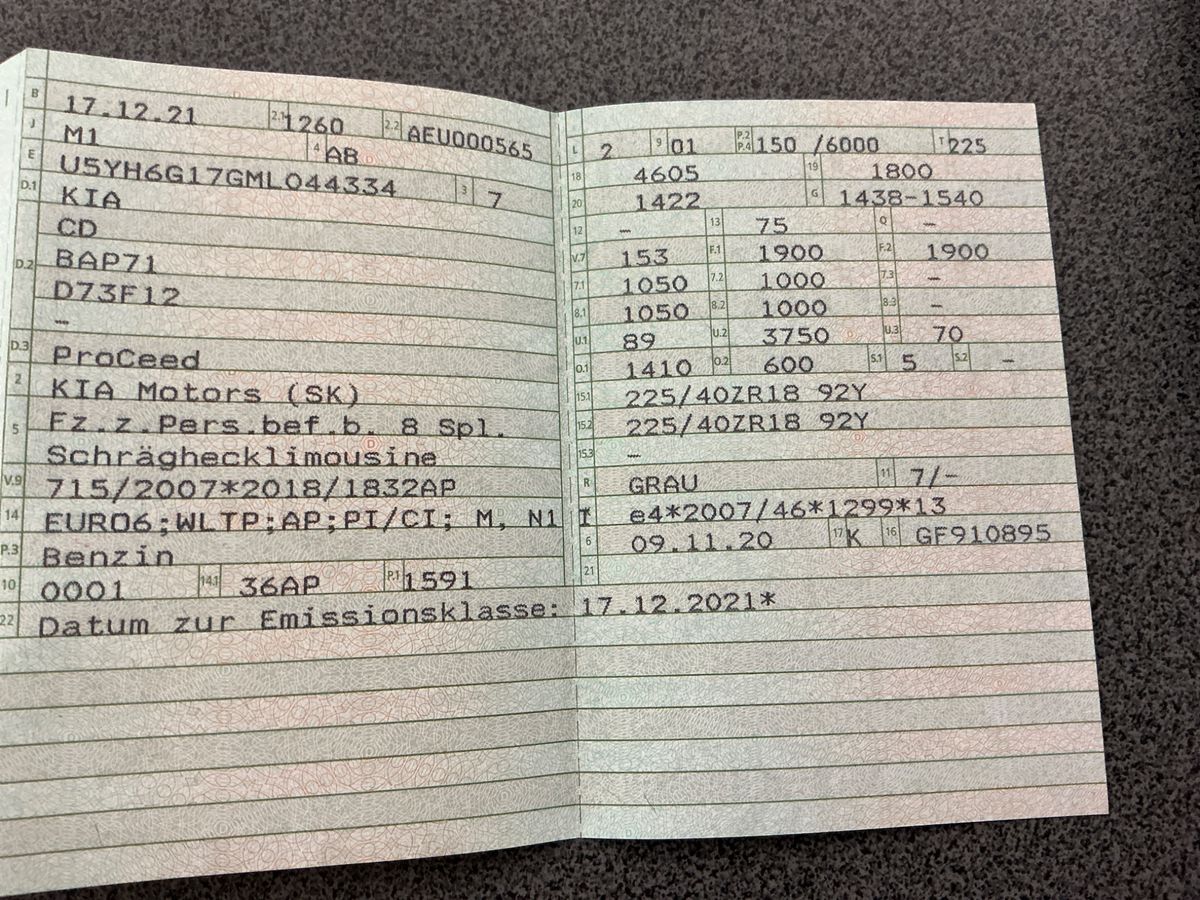 B 17.12.21 2.1 1260 2.2 AEU000565
J M1 4 AB
E U5YH6G17GML044334 3 7
D.1 KIA
CD
D.2 BAP71
D73F12
–
D.3 ProCeed
2 KIA Motors (SK)
5 Fz.z.Pers.bef.b. 8 Spl.
Schräghecklimousine
V.9 715/2007*2018/1832AP
14 EURO6;WLTP;AP;PI/CI; M, N1 I
P.3 Benzin
10 0001 14.1 36AP P.1 1591
22 Datum zur Emissionsklasse: 17.12.2021*
L 2 9 01 P.2 P.4 150 /6000 T 225
18 4605 19 1800
20 1422 G 1438-1540
12 – 13 75 Q –
V.7 153 F.1 1900 F.2 1900
7.1 1050 7.2 1000 7.3 –
8.1 1050 8.2 1000 8.3 –
U.1 89 U.2 3750 U.3 70
O.1 1410 O.2 600 S.1 5 S.2 –
15.1 225/40ZR18 92Y
15.2 225/40ZR18 92Y
15.3 –
R GRAU 11 7/–
K e4*2007/46*1299*13
6 09.11.20 17 K 16 GF910895
21